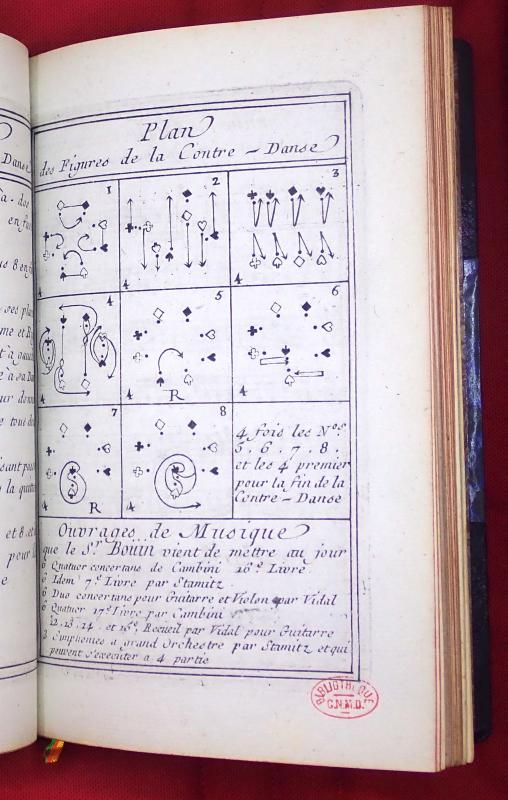 Plan
des Figures de la Contre - Danse
1
2
3
4
4
4
4
5
6
4
4
R
7
8
4
4
R
4 fois les Nos.
5. 6. 7. 8.
et les 4 premier
pour la fin de la
Contre - Danse
Ouvrages de Musique
que le Sr. Bouin vient de mettre au jour
6 Quatuor concertans de Cambini 16e. Livre
6 Idem 7e. Livre par Stamitz
6 Duo concertans pour Guitarre et Violon par Vidal
6 Quatuor 17e. Livre par Cambini
12. 13. 14 et 15e. Recueil par Vidal pour Guitarre
3 Simphonies a grand Orchestre par Stamitz et qui
peuvent s'executer a 4 partie
BIBLIOTHEQUE
C.N.M.D.
Danse